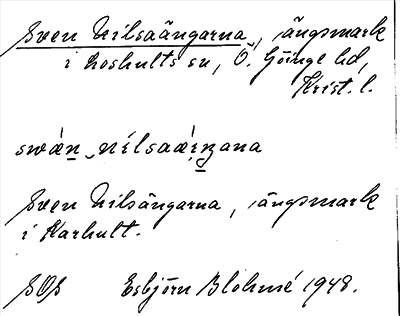 Sven Nilsaängarna, ängsmark
i Loshults sn, Ö. Göinge hd,
Krist. l.
swǽn nílsaæŋana
Sven Nilsängarna, ängsmark
i Harhult.
SOS Esbjörn Blohmé 1948.